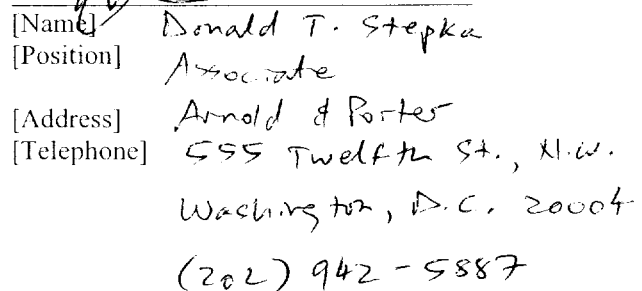 [Name] Donald T. Stepka
[Position] Associate
[Address] Arnold & Porter
[Telephone] 555 Twelfth St., N.W.
Washington, D.C. 20004
(202) 942-5887